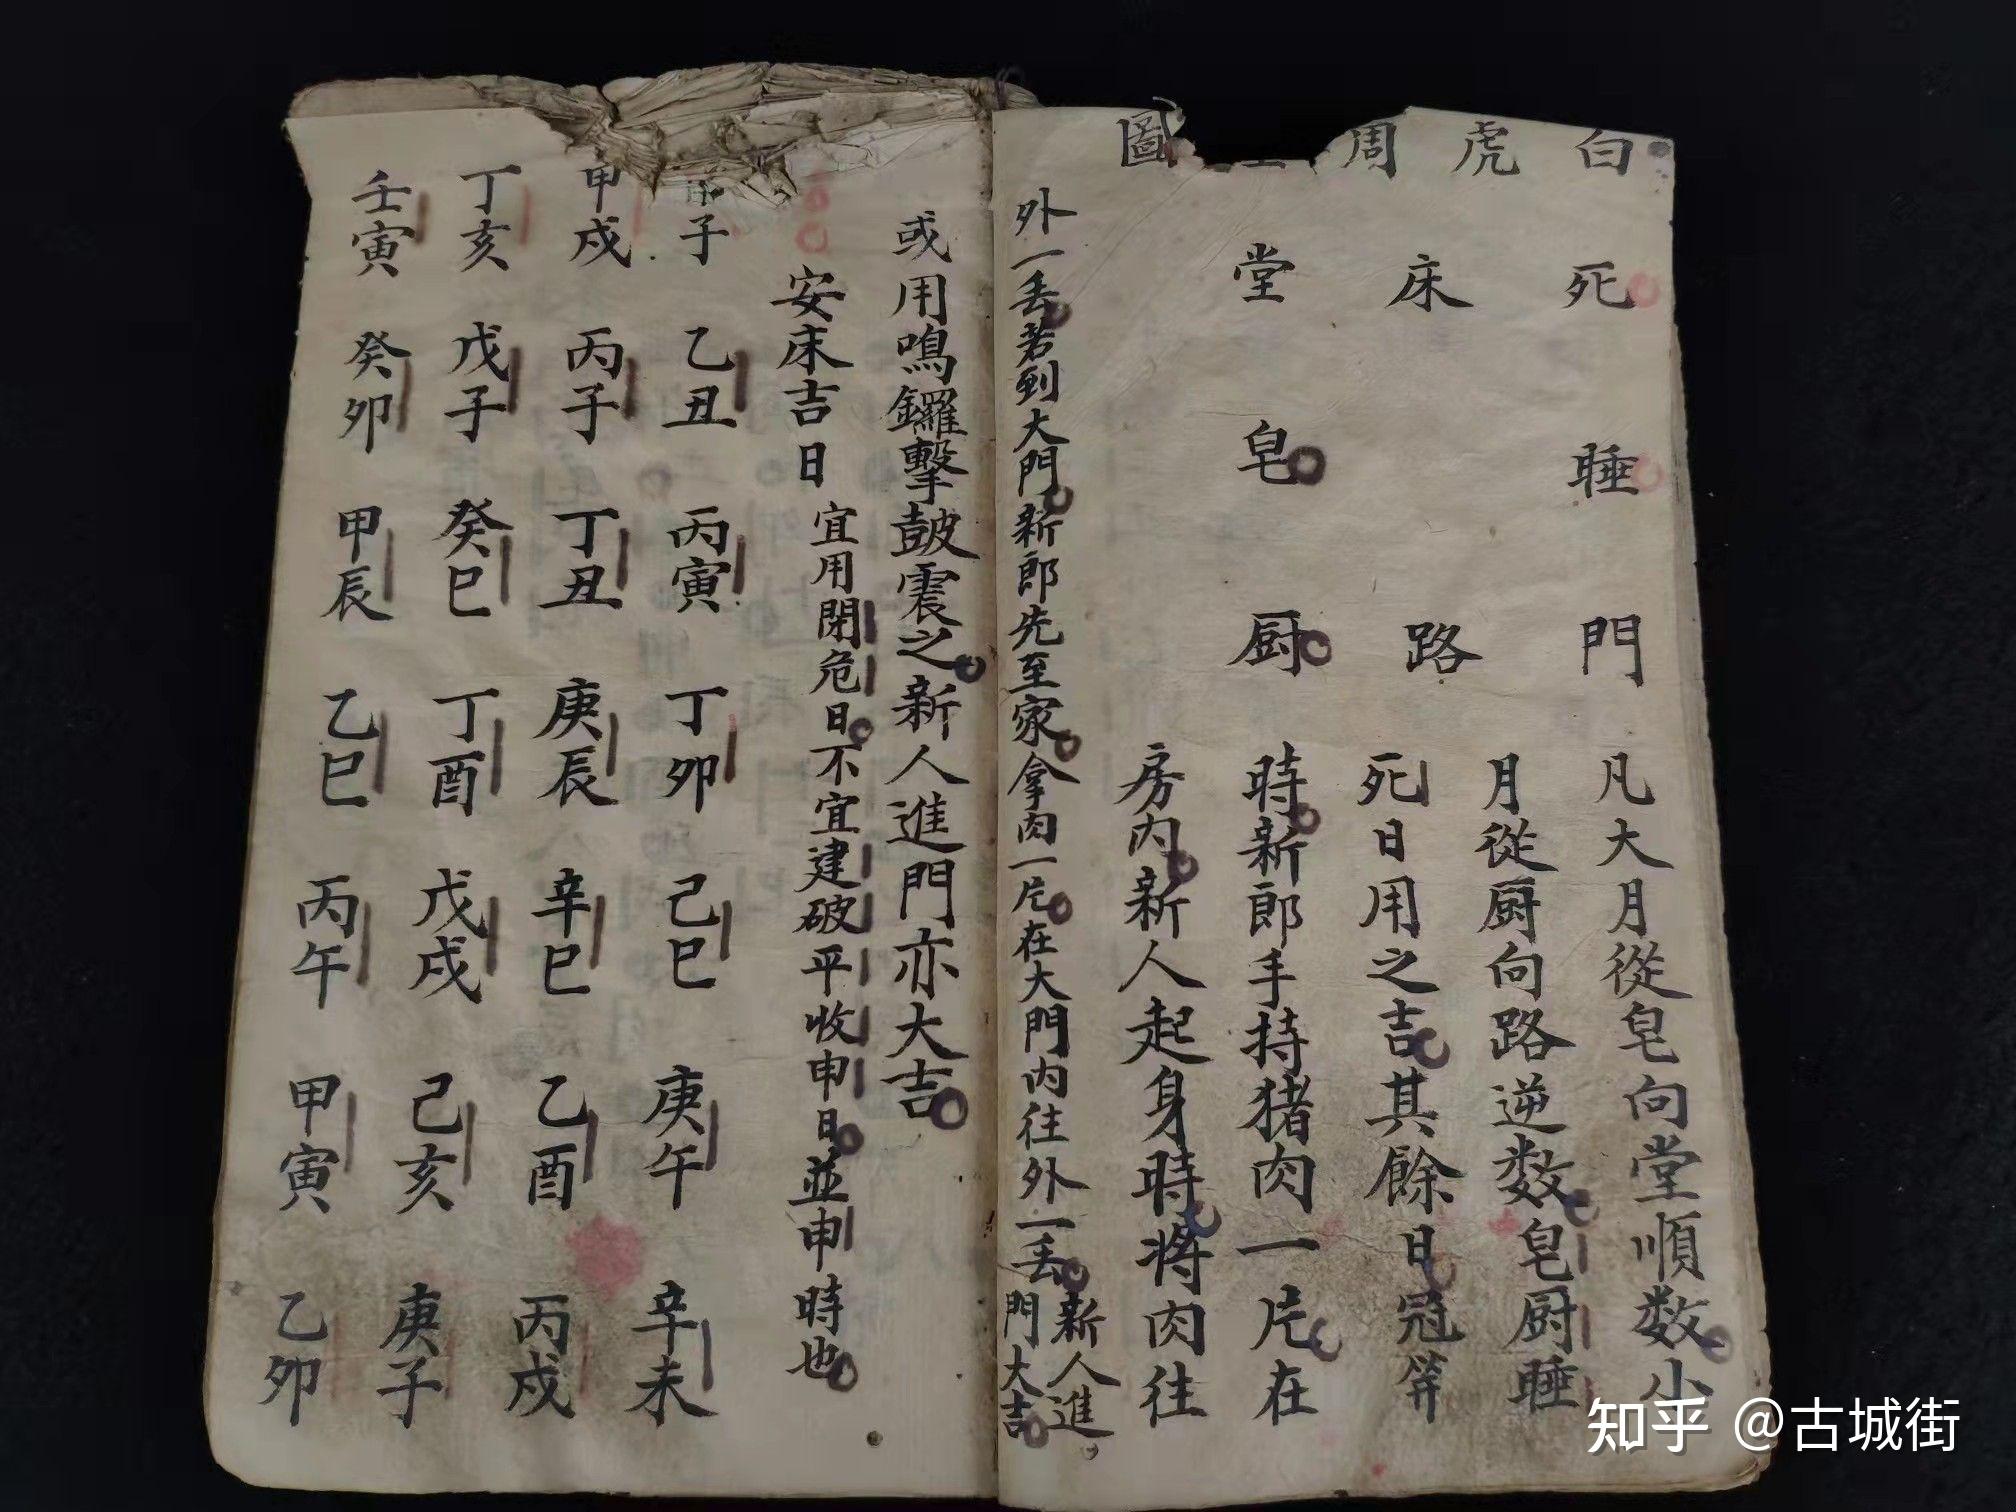 白虎周圖
死睡門
床路
堂皂厨
凡大月從皂向堂順数小
月從厨向路逆数皂厨睡
死日用之吉其餘日冠笄
時新郎手持猪肉一片在
房内新人起身時將肉往
外一丢若到大門新郎先至家拿肉一片在大門内往外一丢新人進
門大吉
或用鳴鑼擊皷震之新人進門亦大吉
安床吉日宜用閉危日不宜建破平收申日並申時也
甲子 乙丑 丙寅 丁卯 己巳 庚午 辛未
甲戌 丙子 丁丑 庚辰 辛巳 乙酉 丙戌
丁亥 戊子 癸巳 丁酉 戊戌 己亥 庚子
壬寅 癸卯 甲辰 乙巳 丙午 甲寅 乙卯
知乎 @古城街